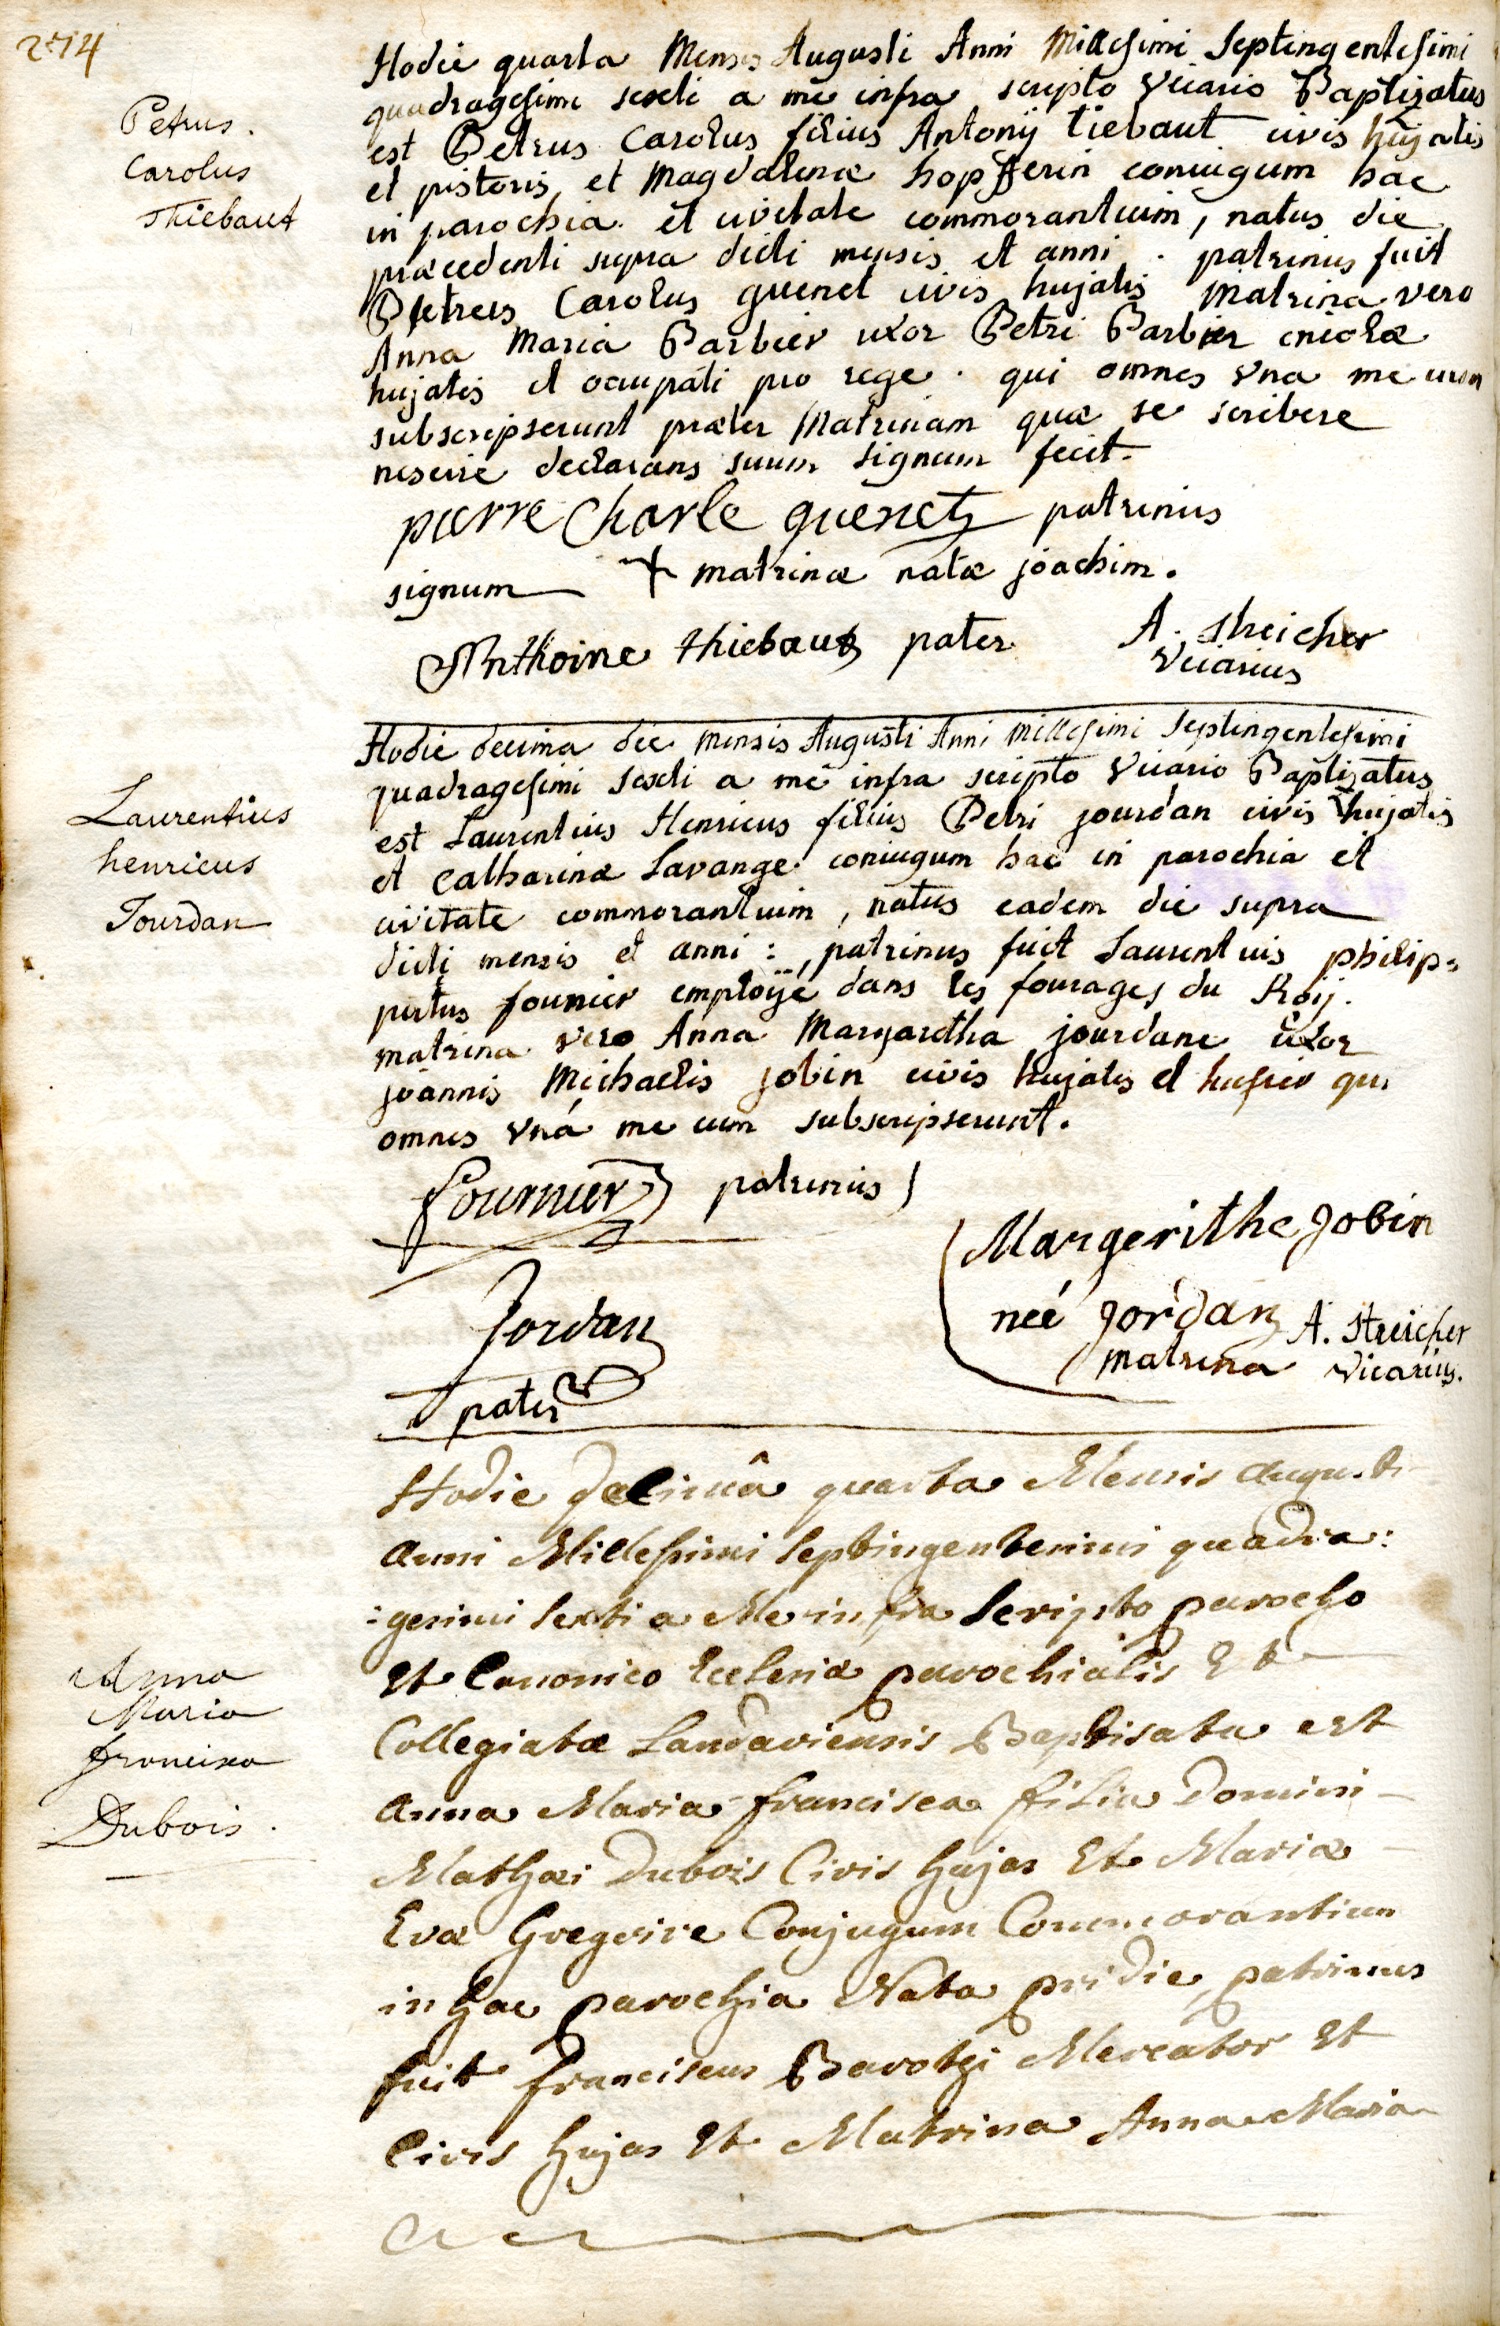 274
Petrus.
Carolus
Thiebaut
Hodie quarta Mensis Augusti Anni Millesimi Septingentesimi
quadragesimi sexti a me infra scripto vicario Baptizatus
est Petrus Carolus filius Antonij tiebaut civis hujatis
et pistoris, et Magdalenæ hopfferin coniugum hac
in parochia et civitate commorantium, natus die
præcedenti supra dicti mensis et anni. patrinus fuit
Petrus Carolus quenet civis hujatis Matrina vero
Anna Maria Barbier uxor Petri Barbier incolæ
hujatis et occupati pro rege. qui omnes vna me cum
subscripserunt præter Matrinam quæ se scribere
nescire declarans suum signum fecit.
pierre Charle quenet patrinus
signum + matrinæ natæ joachim.
Anthoine thiebaut pater
A. Streicher
Vicarius
Laurentius
henricus
Jourdan
Hodie decima die mensis Augusti Anni millesimi Septingentesimi
quadragesimi sexti a me infra scripto vicario Baptizatus
est Laurentius Henricus filius Petri jourdan civis hujatis
et Catharinæ Lavange coniugum hac in parochia et
civitate commorantium, natus eadem die supra
dicti mensis et anni:, patrinus fuit Laurentius philip=
pertus founier employé dans les fourages du Roij.
matrina vero Anna Margaretha jourdane uxor
joannis Michaelis jobin civis hujatis et husier qui
omnes vná me cum subscripserunt.
fournier patrinus
Margerithe Jobin
neé Jordan
matrina
A. Streicher
Vicarius.
Jordan
pater
Anna
Maria
francisca
Dubois.
Hodie decimâ quarta Mensis Augusti
Anni Millesimi Septingentesimi quadra:
:gesimi sexti a Me infra Scripto parocho
Et Canonico Ecclesiæ parochialis Et
Collegiatæ Landaviensis Baptisata est
Anna Maria francisca filia Domini
Mathæi Dubois Civis hujas Et Mariæ
Evæ Gregoire Conjugum Commorantium
in hac parochia Nata pridie, patrinus
fuit franciscus Barotzi Mercator Et
Civis hujas Et Matrina Anna Maria